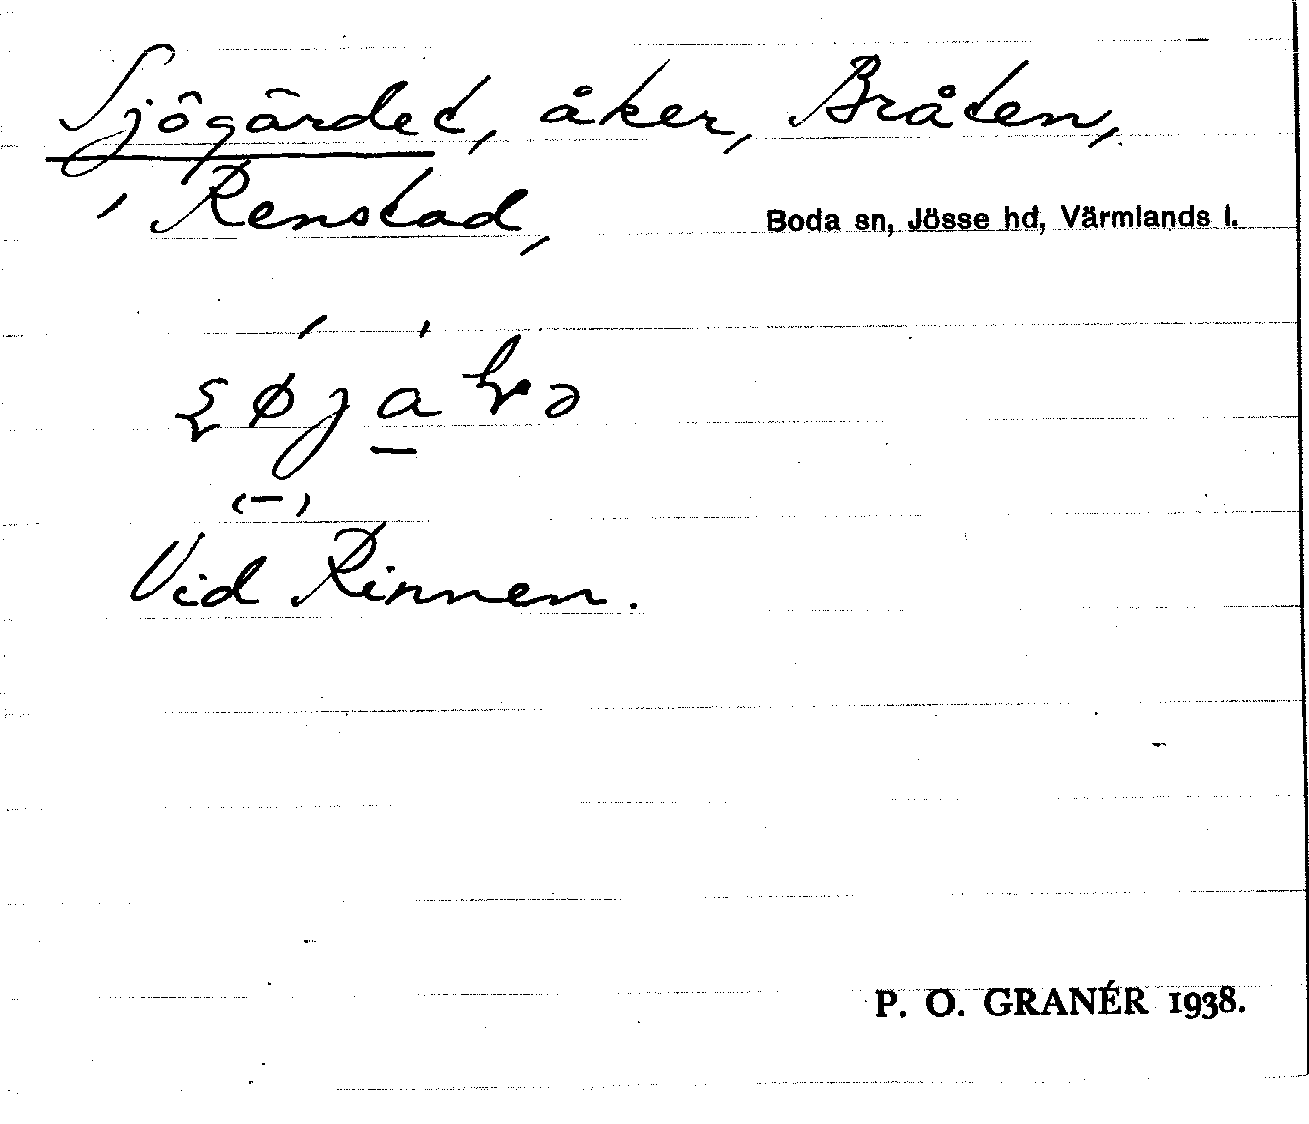 Sjögärdet, åker, Bråten,
Renstad,
Boda sn, Jösse hd, Värmlands l.
Vid Rinnen.
P. O. GRANÉR 1938.